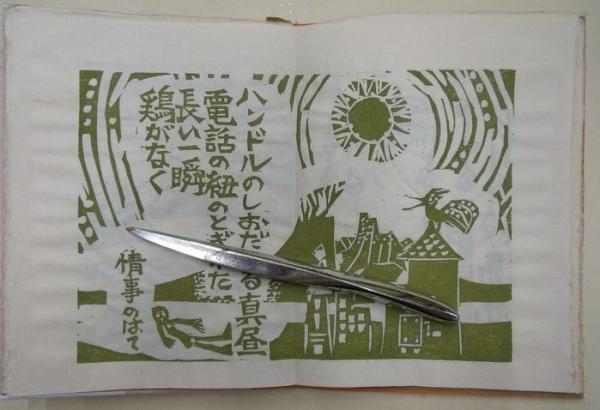 ハンドルのしおだれる真昼
電話の紐のとぎれた
長い一瞬
鶏がなく
情事のはて